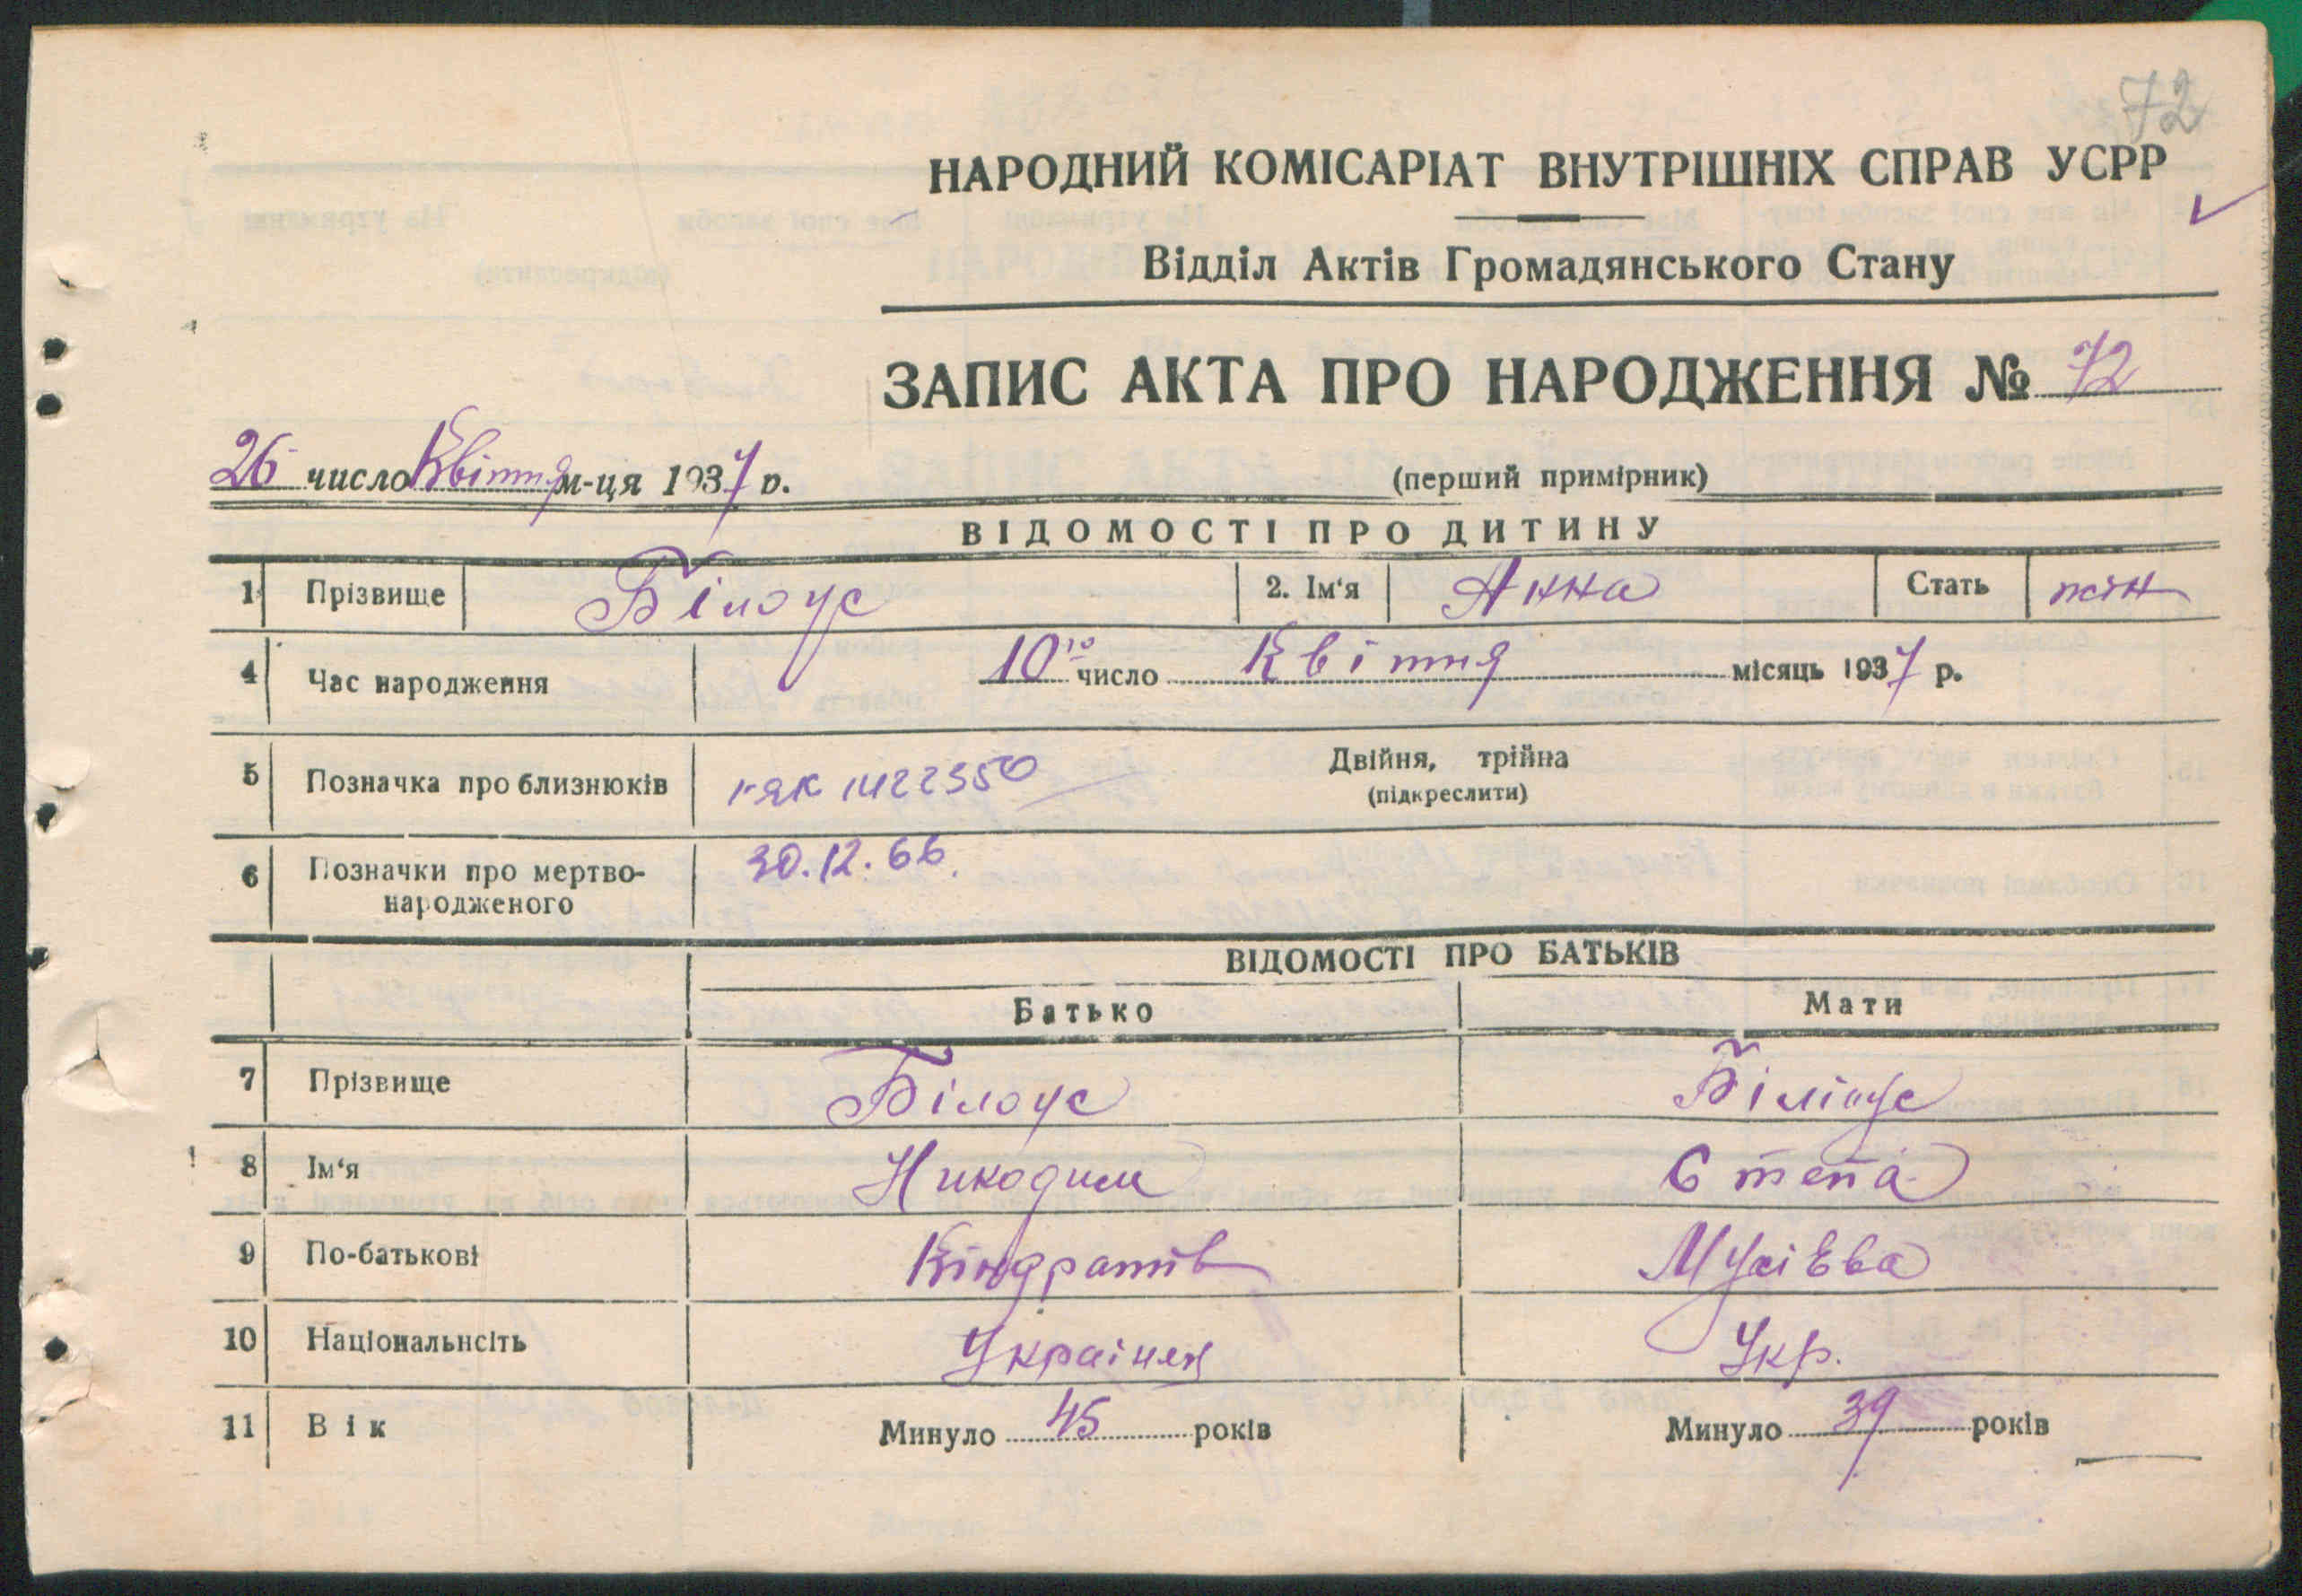 72
НАРОДНИЙ КОМІСАРІАТ ВНУТРІШНІХ СПРАВ УСРР
Відділ Актів Громадянського Стану
ЗАПИС АКТА ПРО НАРОДЖЕННЯ № 72
26 число Квітня м-ця 1937 р.
(перший примірник)
ВІДОМОСТІ ПРО ДИТИНУ
1 Прізвище Білоус 2. Ім'я Анна Стать жін
4 Час народження 10го число Квітня місяць 1937 р.
5 Позначка про близнюків 1422350 Двійня, трійна
(підкреслити)
6 Позначки про мертво-
народженого
30.12.66.
ВІДОМОСТІ ПРО БАТЬКІВ
Батько Мати
7 Прізвище Білоус Біліоус
8 Ім'я Никодим Степа
9 По-батькові Кіндратів Мусіева
10 Національнсіть Українец Укр.
11 Вік Минуло 45 років Минуло 39 років